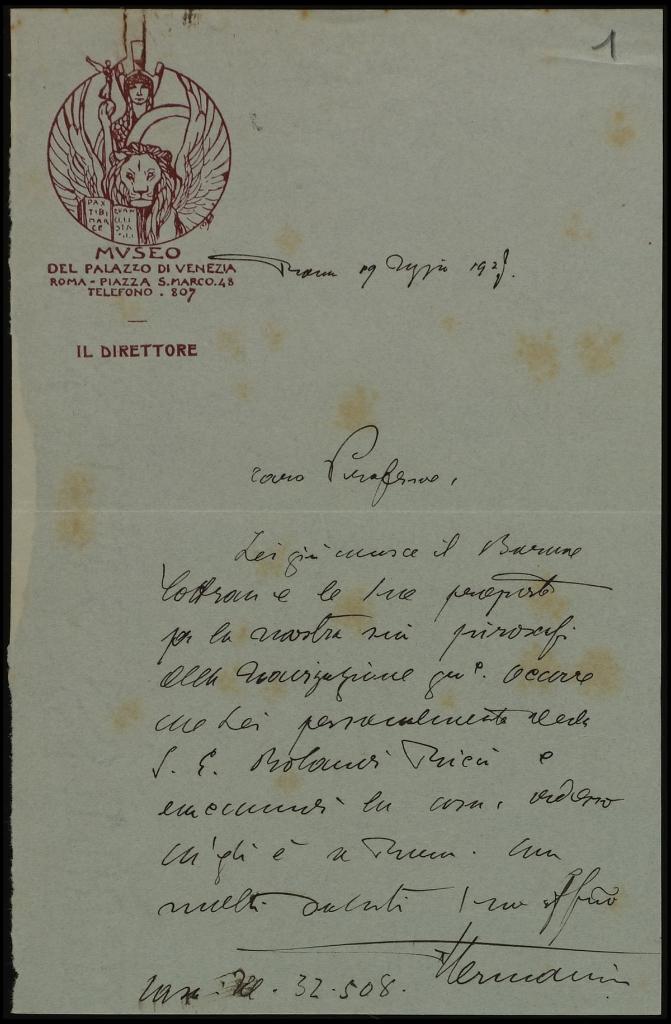 1
PAX
TIBI
MAR
CE
MVSEO
DEL PALAZZO DI VENEZIA
ROMA - PIAZZA S. MARCO. 48
TELEFONO . 807
IL DIRETTORE
Roma 19 192
caro Professore,
Lei già conosce il Barone
e le sue proposte
per la mostra sui piroscafi
della Navigazione gen.e. Occorre
che Lei personalmente veda
S. E. Rolandi Ricci e
raccomandi la cosa, adesso
ch'egli è a Roma. Con
molti saluti suo aff.mo
Hermanin
casa. Tel. 32.508.